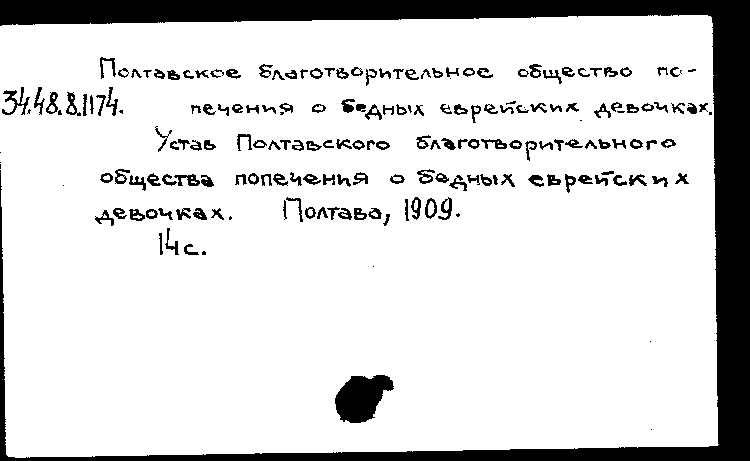 Полтавское благотворительное общество по-
34.48.8.1174. печения о бедных еврейских девочках.
Устав Полтавского благотворительного
общества попечения о бедных еврейских
девочках. Полтава, 1909.
14с.